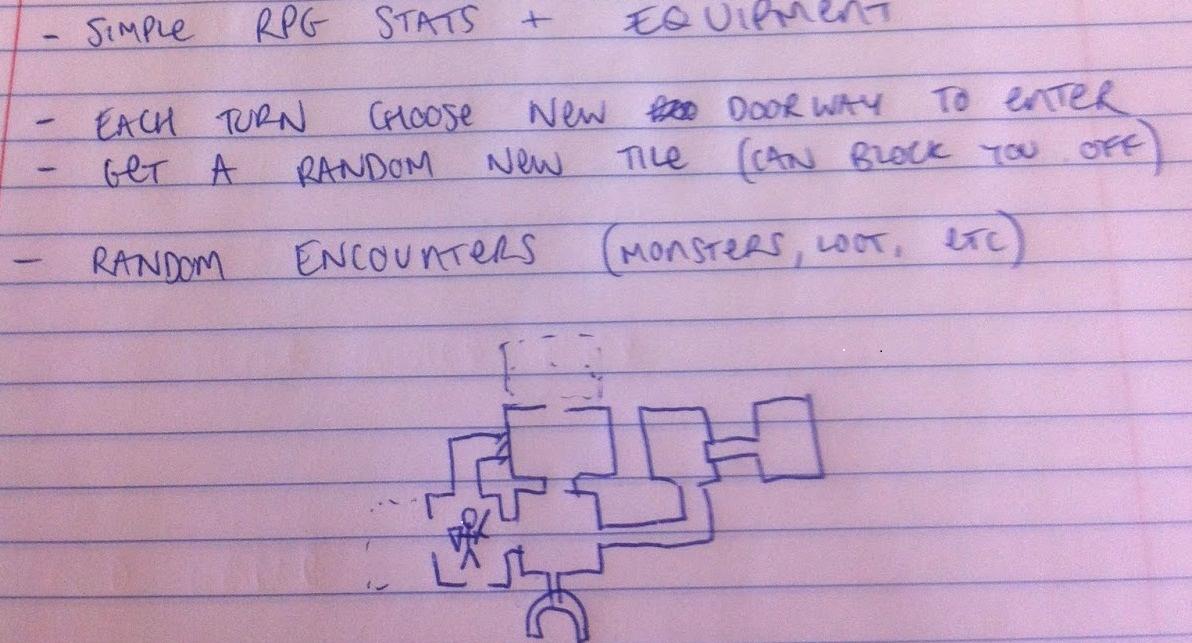 - SIMPLE RPG STATS + EQUIPMENT
- EACH TURN CHOOSE NEW DOORWAY TO ENTER
- GET A RANDOM NEW TILE (CAN BLOCK YOU OFF)
- RANDOM ENCOUNTERS (MONSTERS, LOOT, ETC)